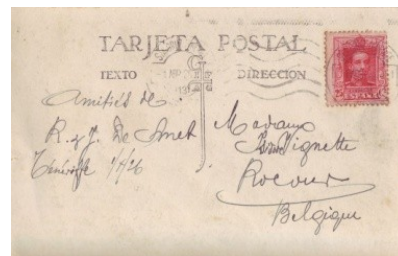 TARJETA POSTAL
TEXTO
DIRECCION
ESPAÑA
Amitiés de
R. & J. De Smet
Ténériffe
Madame
Vignette
Rocour
Belgique